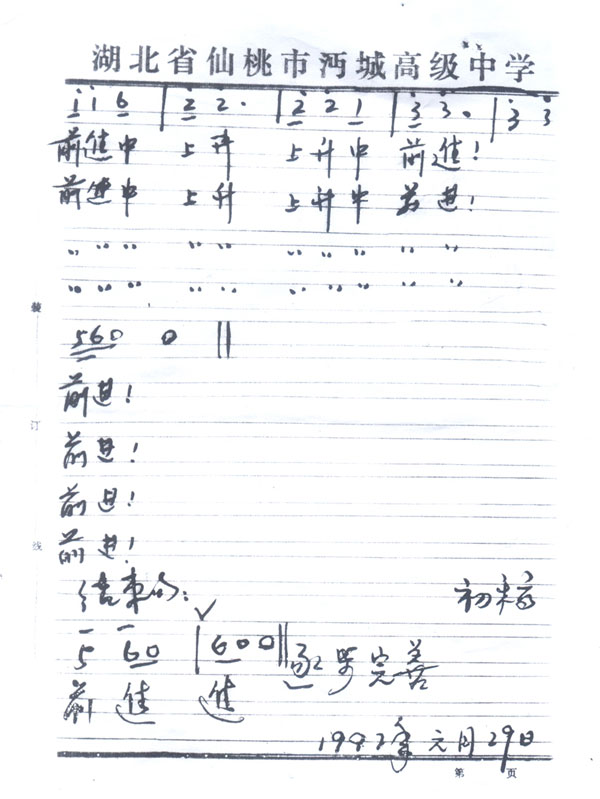 湖北省仙桃市沔城高级中学
i i 6 | 2 2. | 2 2 1 | 3 3. | 3 3
前進中 上升 上升中 前進!
前進中 上升 上升中 前进!
〃 〃 〃 〃 〃 〃 〃 〃 〃 〃
〃 〃 〃 〃 〃 〃 〃 〃 〃 〃
560 0 ‖
前进!
前进!
前进!
前进!
结束句: 初稿
5 60 | 600 ‖ 逐步完善
前進 進
装
订
线
元月29日
第 页